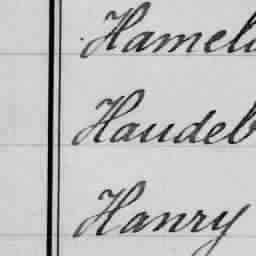 Hamel
Haudeb
Hanry